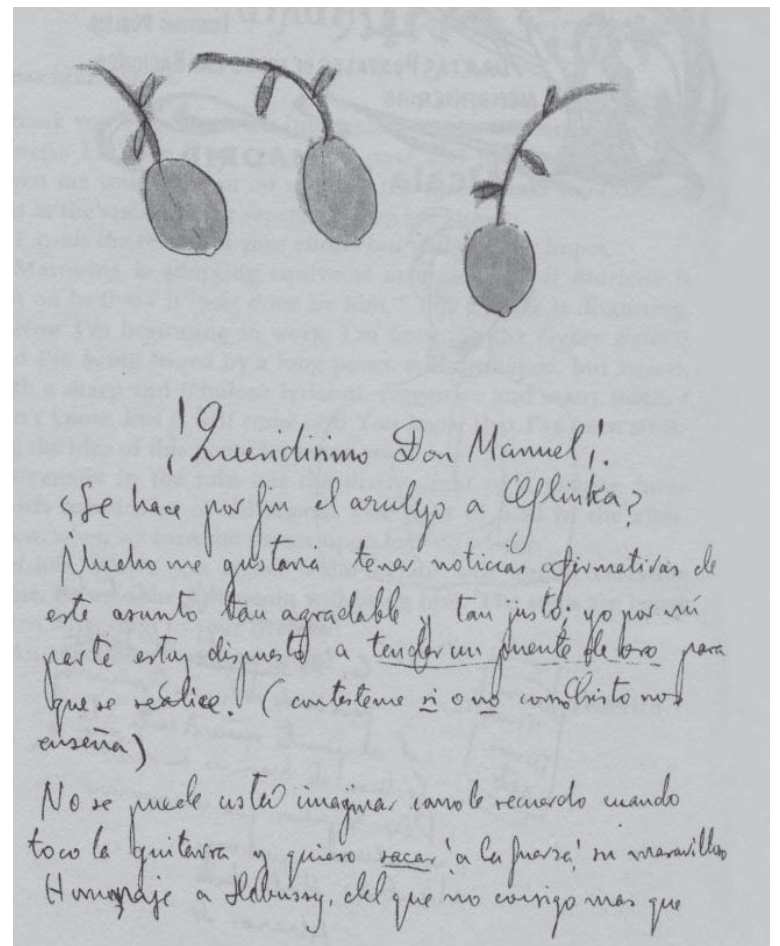 ¡Queridísimo Don Manuel!
¿Se hace por fin el azulejo a Glinka?
Mucho me gustaría tener noticias afirmativas de
este asunto tan agradable y tan justo; yo por mi
parte estoy dispuesto a tender un puente de oro para
que se realice. (contésteme si o no como Cristo nos
enseña)
No se puede usted imaginar como le recuerdo cuando
toco la guitarra y quiero sacar 'a la fuerza' su maravilloso
Homenaje a Debussy, del que no consigo mas que